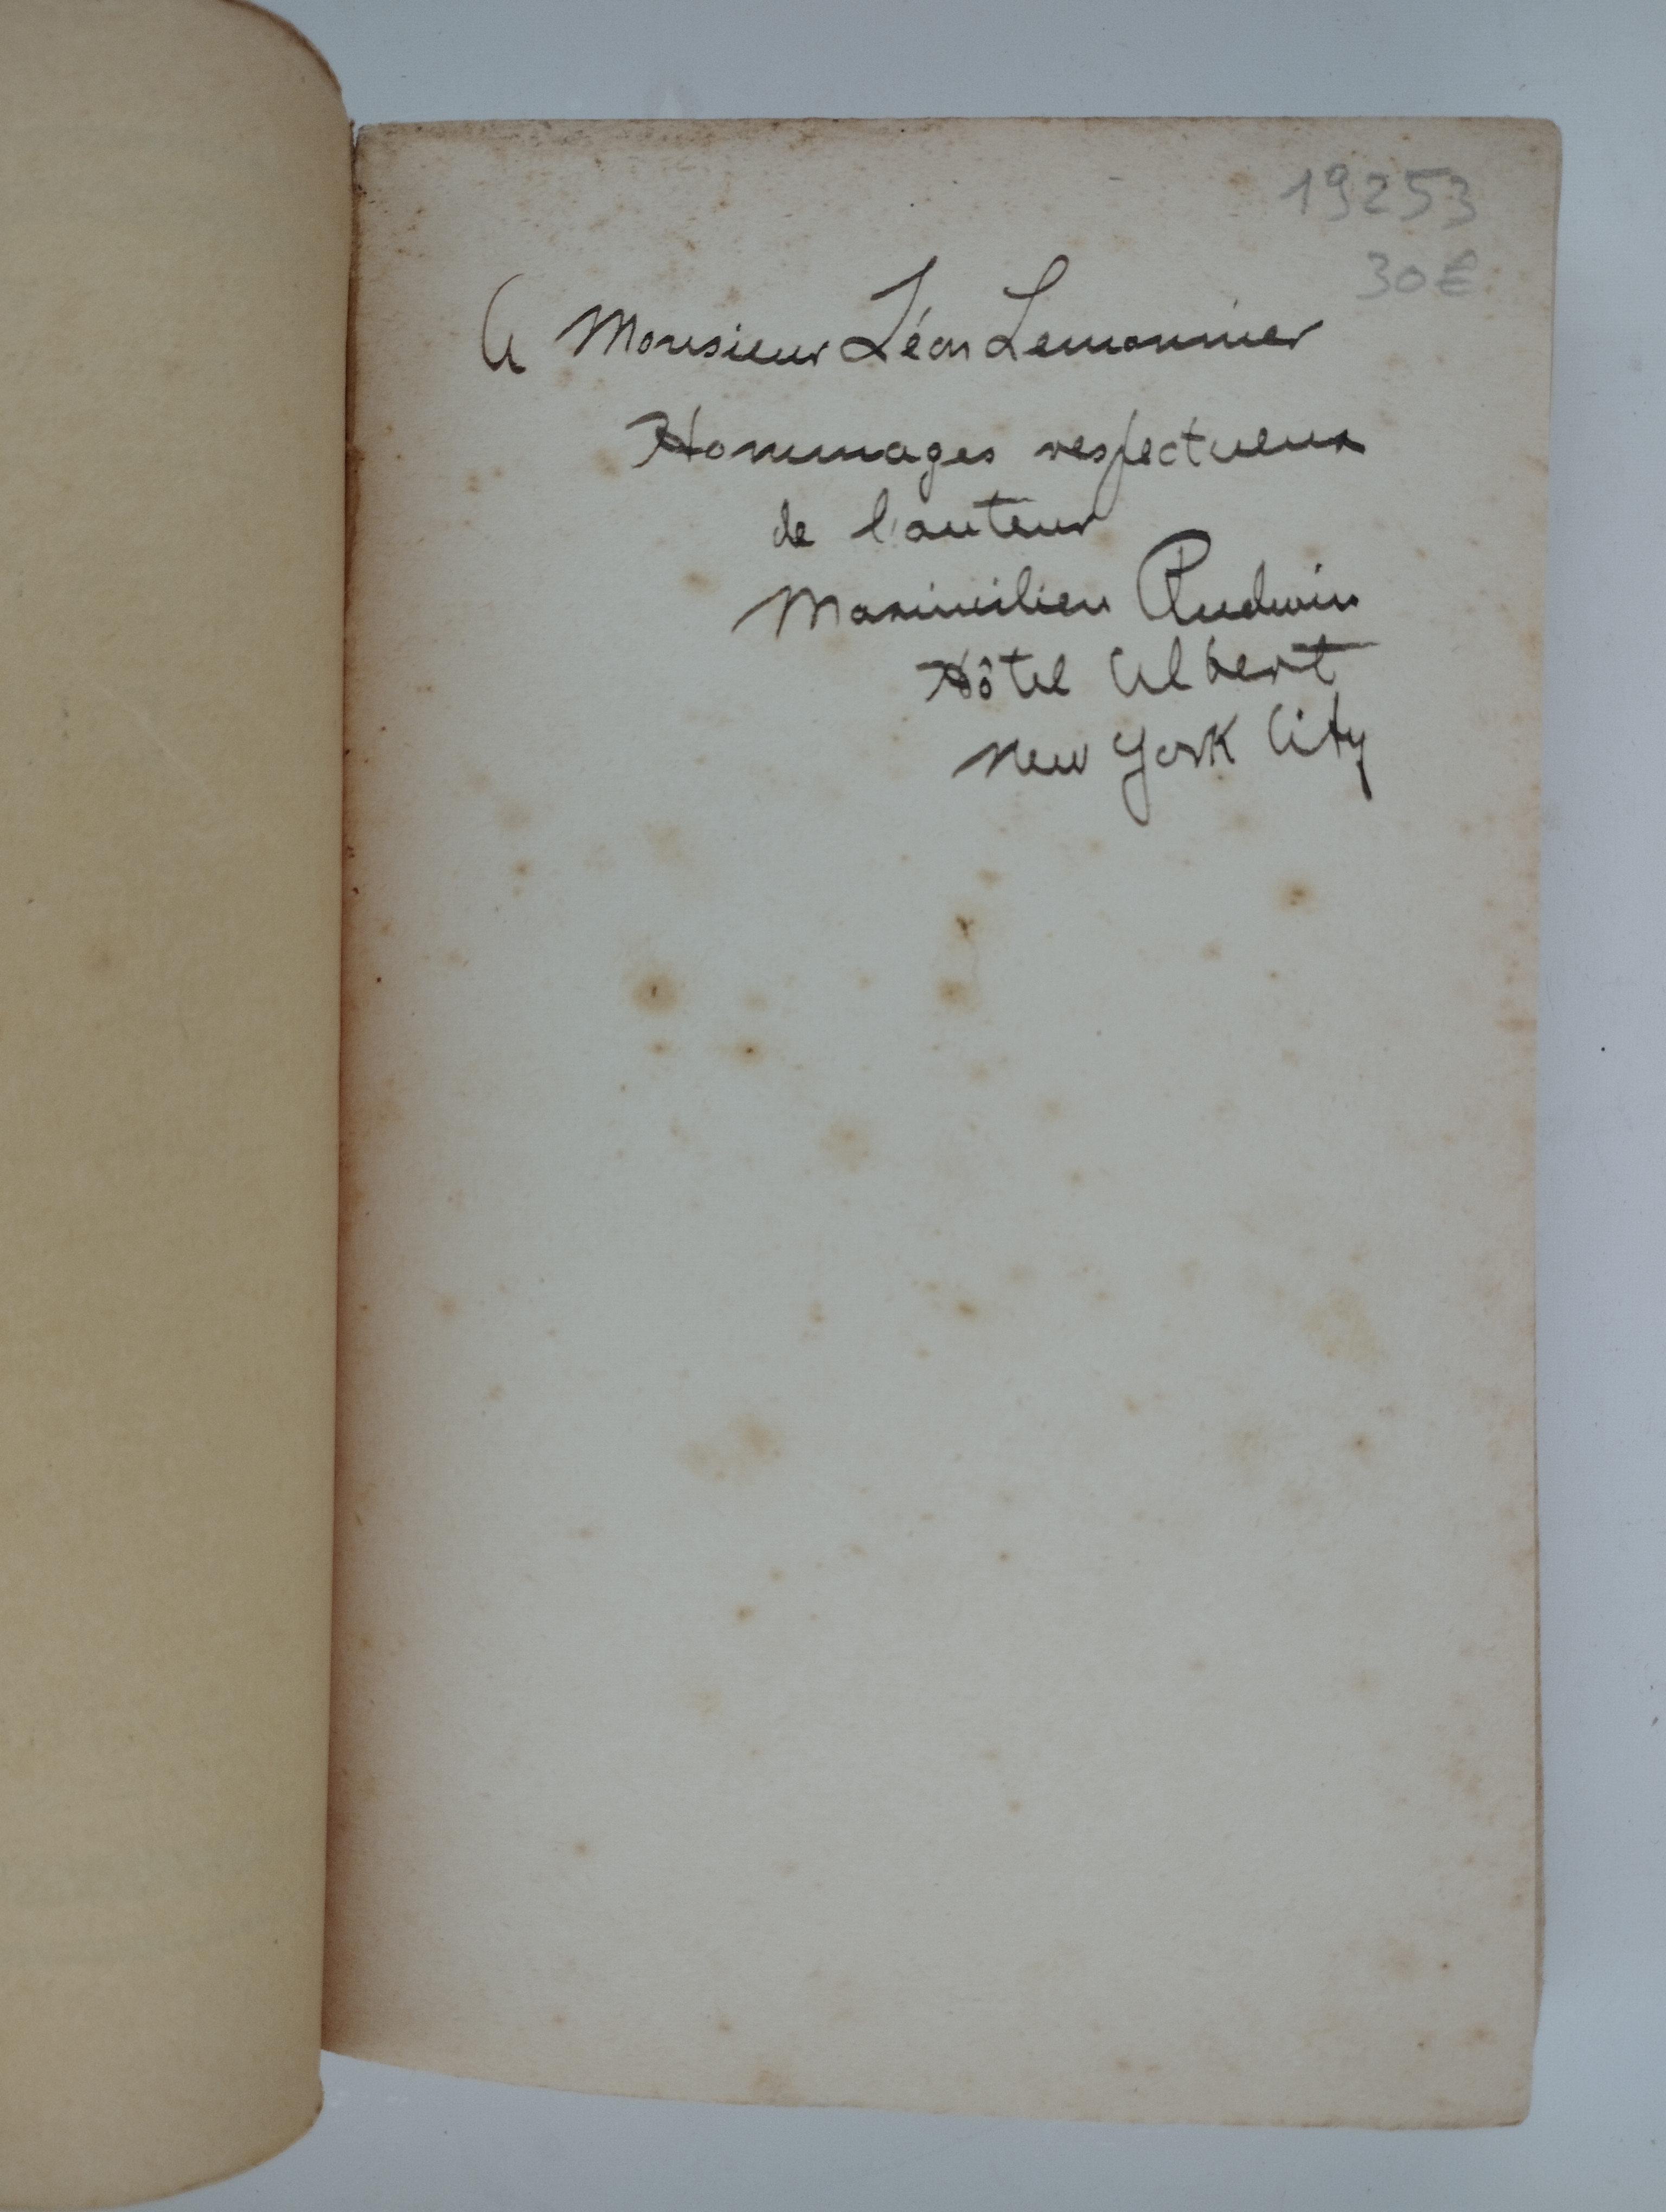 19253
30€
A Monsieur Léon Lemonnier
Hommages respectueux
de l'auteur
Maximilien Rudwin
Hôtel Albert
New York City